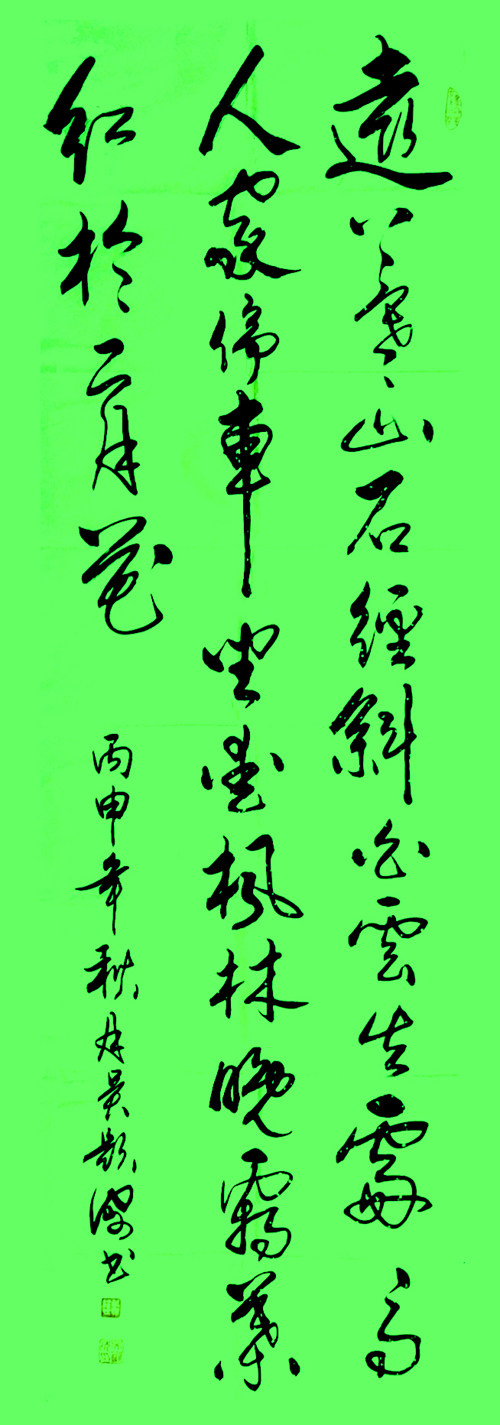 遠上寒山石經斜白雲生處有
人家停車坐愛楓林晚霜葉
紅於二月花
丙申年秋月吳書